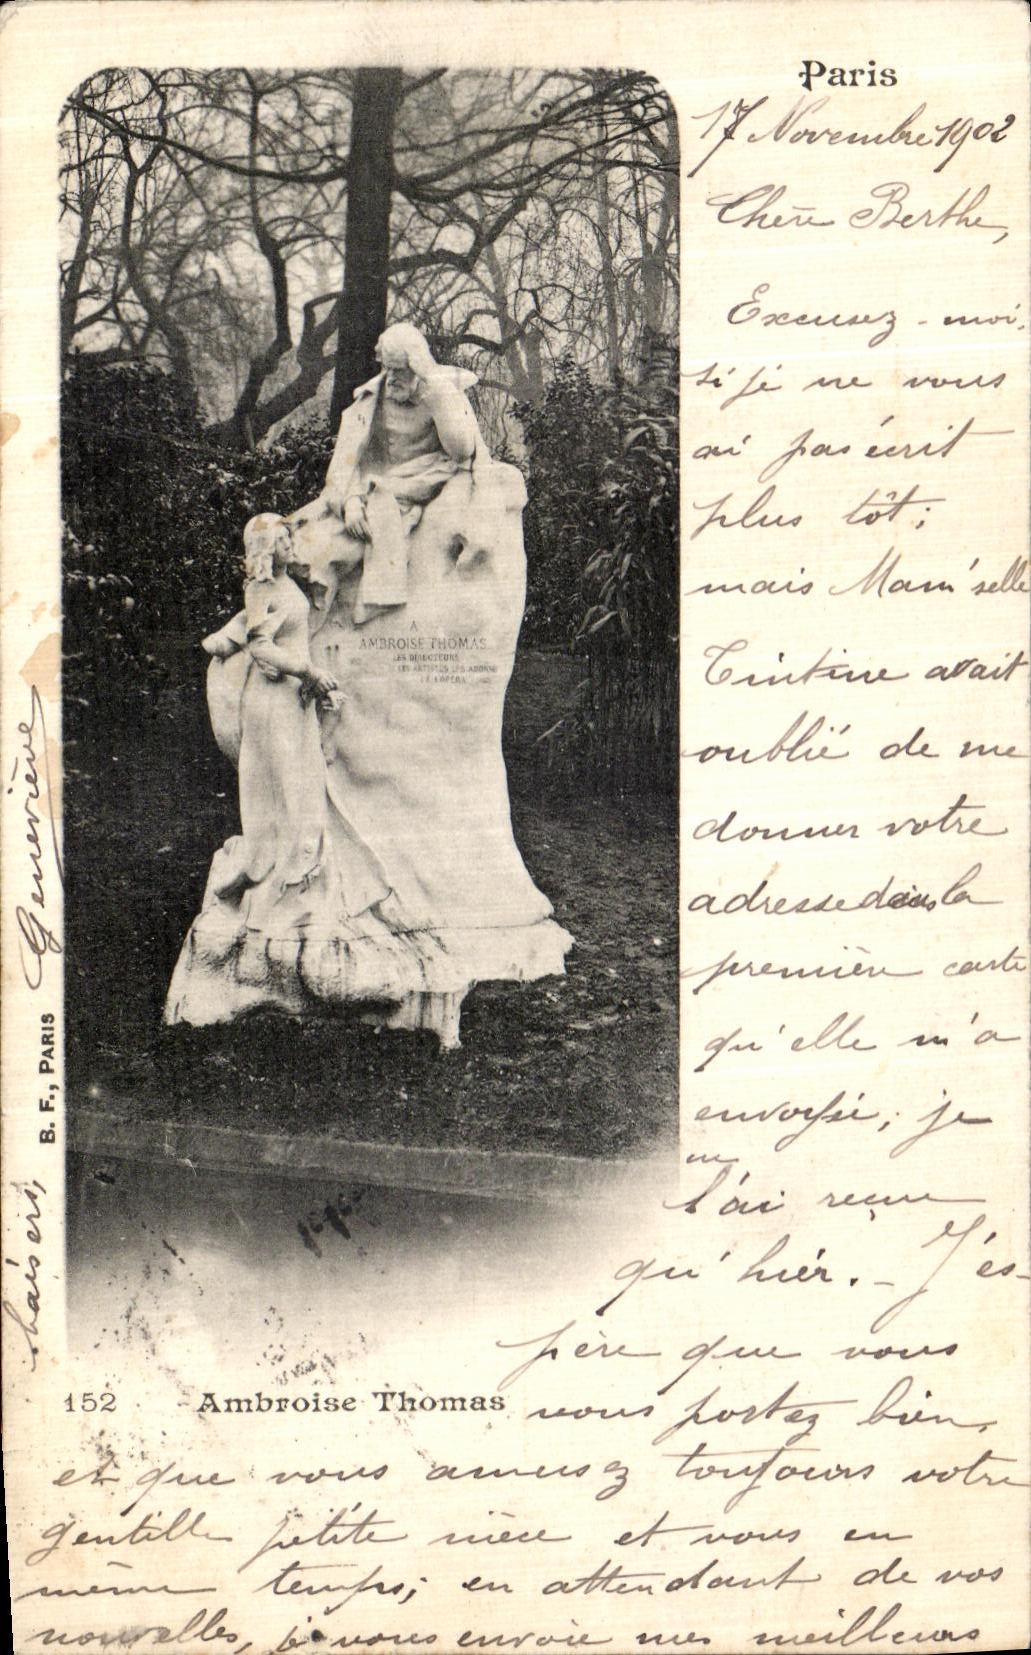 Paris
17 Novembre 1902
Chère Berthe,
Excusez-moi,
si je ne vous
ai pas écrit
plus tôt;
mais Mam'selle
Tintine avait
oublié de me
donner votre
adresse dans la
première carte
qu'elle m'a
envoyée; je
ne
l'ai reçue
qu'hier. - J'es-
père que vous
vous portez bien,
et que vous amusez toujours votre
gentille petite nièce et vous en
même temps; en attendant de vos
nouvelles, je vous envoie mes meilleurs
baisers,
Geneviève
B. F., PARIS
152 Ambroise Thomas
A
AMBROISE THOMAS
LES DIRECTEURS
LES ARTISTES LES ABONNÉS
DE L'OPÉRA